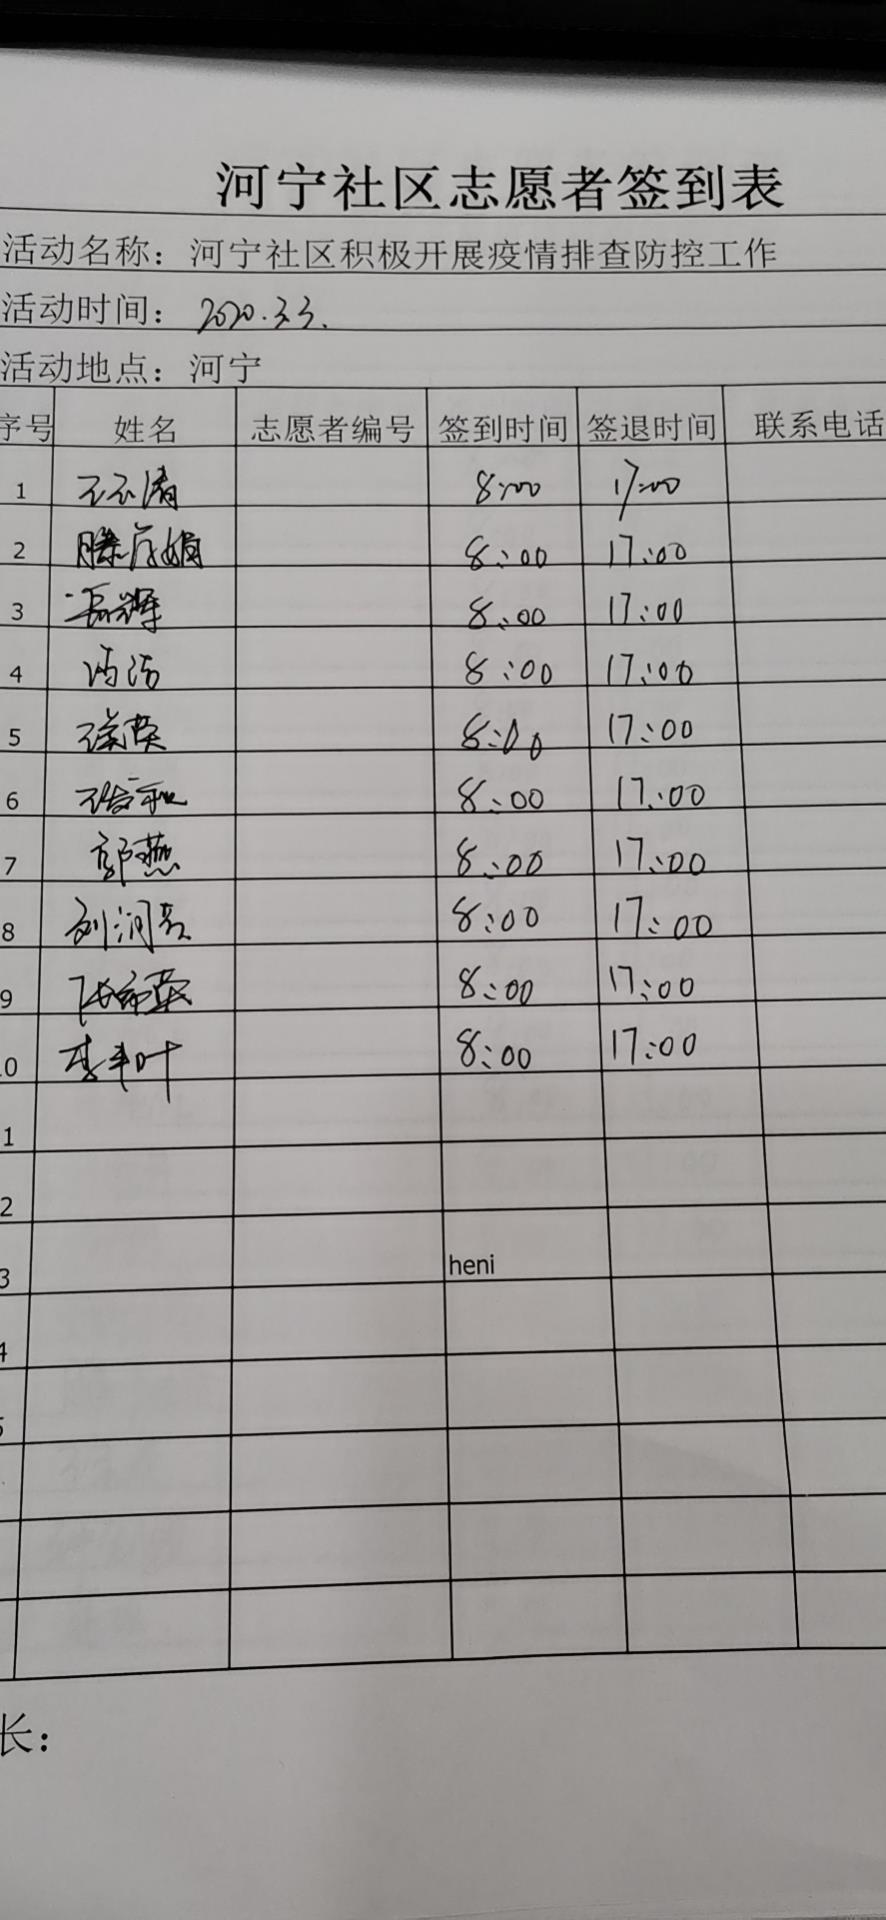 河宁社区志愿者签到表
活动名称：河宁社区积极开展疫情排查防控工作
活动时间：2020.3.3.
活动地点：河宁
序号 姓名 志愿者编号 签到时间 签退时间 联系电话
1 8:00 17:00
2 8:00 17:00
3 8:00 17:00
4 8:00 17:00
5 8:00 17:00
6 8:00 17:00
7 郭燕 8:00 17:00
8 刘润亮 8:00 17:00
9 8:00 17:00
0 李丰叶 8:00 17:00
1
2
3 heni
4
5
长：